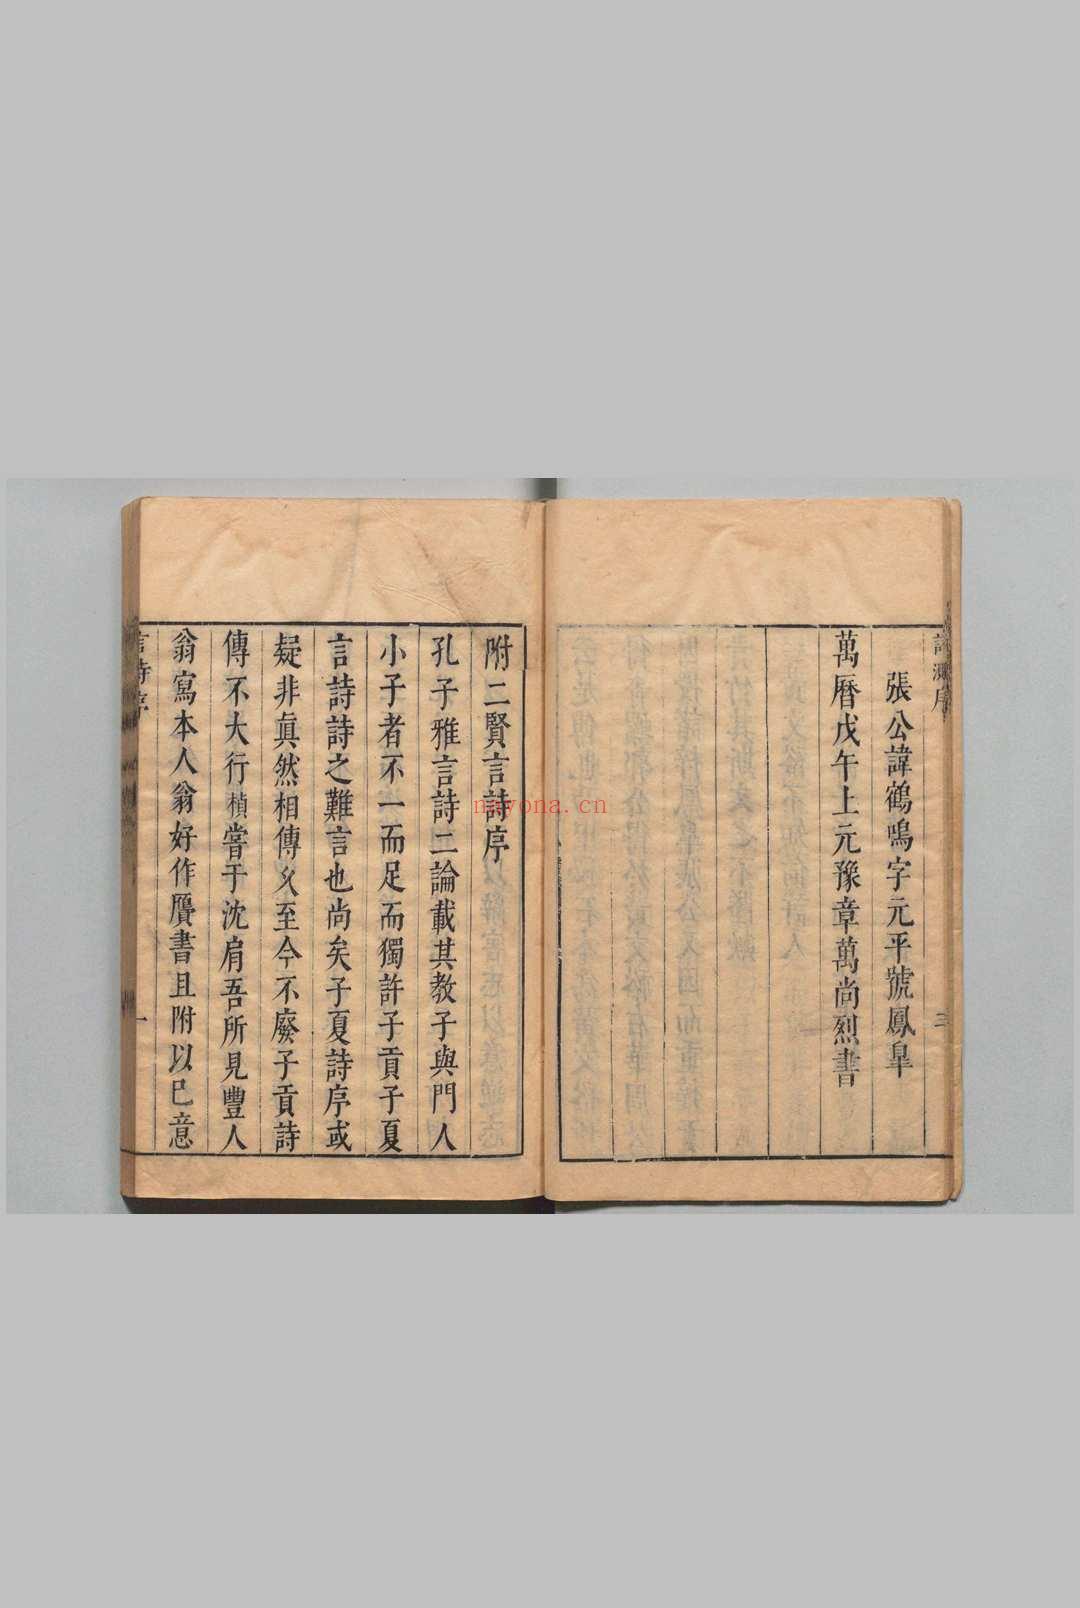 張公諱鶴鳴字元平號鳳臯
萬曆戊午上元豫章萬尚烈書
三
附二賢言詩序
孔子雅言詩二論載其教子與門人
小子者不一而足而獨許子貢子夏
言詩詩之難言也尚矣子夏詩序或
疑非眞然相傳久至今不廢子貢詩
傳不大行楨嘗于沈肩吾所見豐人
翁寫本人翁好作贋書且附以已意
言詩序
一
nayona.cn